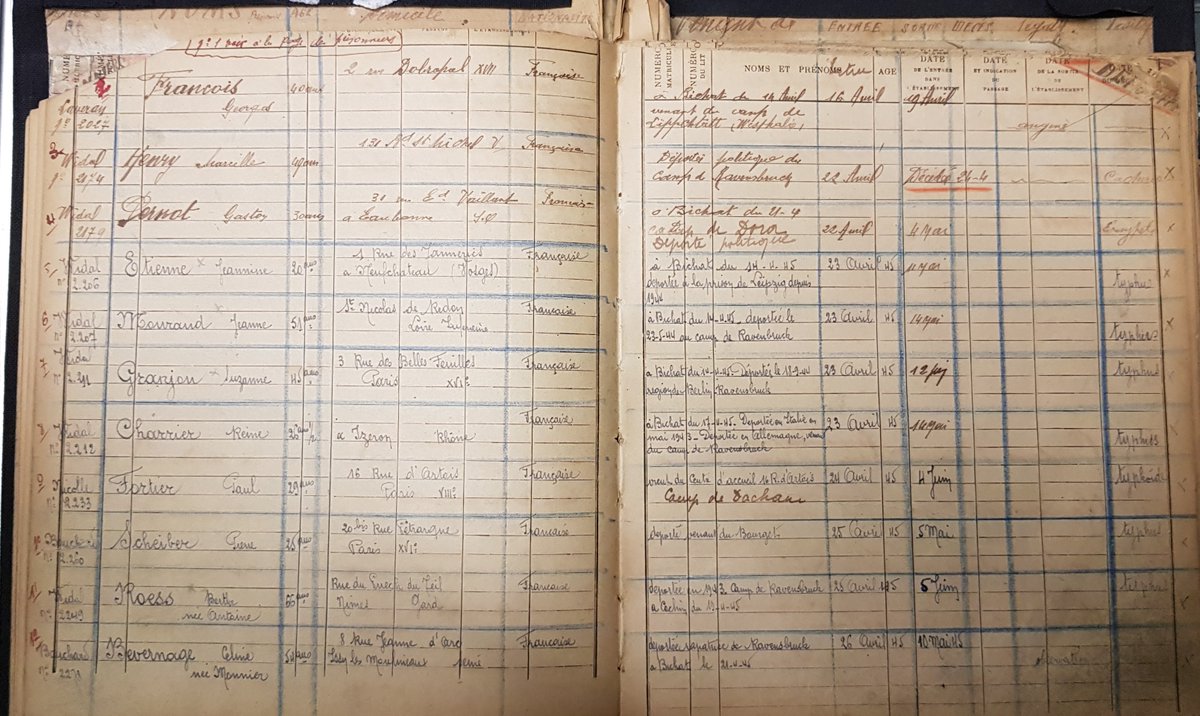 NOMS
Domicile
ENTRÉE SORTIE
NOMS ET PRÉNOMS Entrée AGE
DATE DE L'ENTRÉE DANS L'ÉTABLISSEMENT
DATE ET INDICATION DU PASSAGE
DATE DE LA SORTIE DE L'ÉTABLISSEMENT
NUMÉRO MATRICULE
NUMÉRO DU LIT
François Georges 40 ans 2 rue XVII Française
2027
à Bichat du 14 Avril 16 Avril 19 Avril
venant du camp de
Lippstadt (Westphalie) angine
3 Vidal 2174 Henry Marcelle 49 ans 131 Bd St Michel V Française
Déportée politique du
camp de Ravensbruck 22 Avril Décédée 24-4 Cachexie
4 Vidal 2179 Pernot Gaston 30 ans 31 rue Ed Vaillant Française
a Eaubonne S.O
à Bichat du 21-4
Camp de Dora 22 Avril 4 Mai
Déporté politique
5 Vidal n° 2.206 Etienne Jeannine 20 ans 1 Rue des Tanneries Française
a Neufchateau (Vosges)
à Bichat du 14-4-45 23 Avril 45 11 Mai
deportée à la prison de Leipzig depuis typhus
1944
6 Vidal n° 2.207 Mouraud Jeanne 51 ans St Nicolas de Redon Française
Loire Inférieure
à Bichat du 14-4-45 deportée le 23 Avril 45 14 mai
23-5-44 au camp de Ravensbruck typhus
7 Vidal n° 2.211 Granjon Suzanne 45 ans 3 Rue des Belles Feuilles Française
Paris XVIe
a Bichat du 14-4-45 Déportée le 18-9-44 23 Avril 45 12 Juin
region de Berlin Ravensbruck typhus
8 Vidal n° 2.212 Charrier Reine 26 ans 1/2 a Izeron Rhône Française
à Bichat du 17-4-45. Deportée en Italie en 23 Avril 45 14 Mai
mai 1943 - Deportée en Allemagne, venant
du camp de Ravensbruck typhus
10 Nicolle n° 2.233 Fortier Paul 29 ans 16 Rue d'Artois Française
Paris VIIIe
vient du Centre d'accueil 16 R. d'Artois 24 Avril 45 4 Juin typhoïde
Camp de Dachau
2.260 Scheiber 25 ans 20 bis Rue Pétrarque Française
Paris XVIe
deporté venant du Bourget 25 Avril 45 5 Mai typhus
Vidal n° 2249 Roess Berthe 56 ans Rue du Française
née Antoine Nimes Gard
deportée en 1943 Camp de Ravensbruck 25 Avril 1945 5 Juin typhus
a Cochin du 19-4-45
n° 2271 Bevernage Celine 8 Rue Jeanne d'Arc Française
née Monnier Issy les Moulineaux Seine
deportée rapatriée de Ravensbruck 26 Avril 45 18 Mai 45
à Bichat le 21-4-45 observation